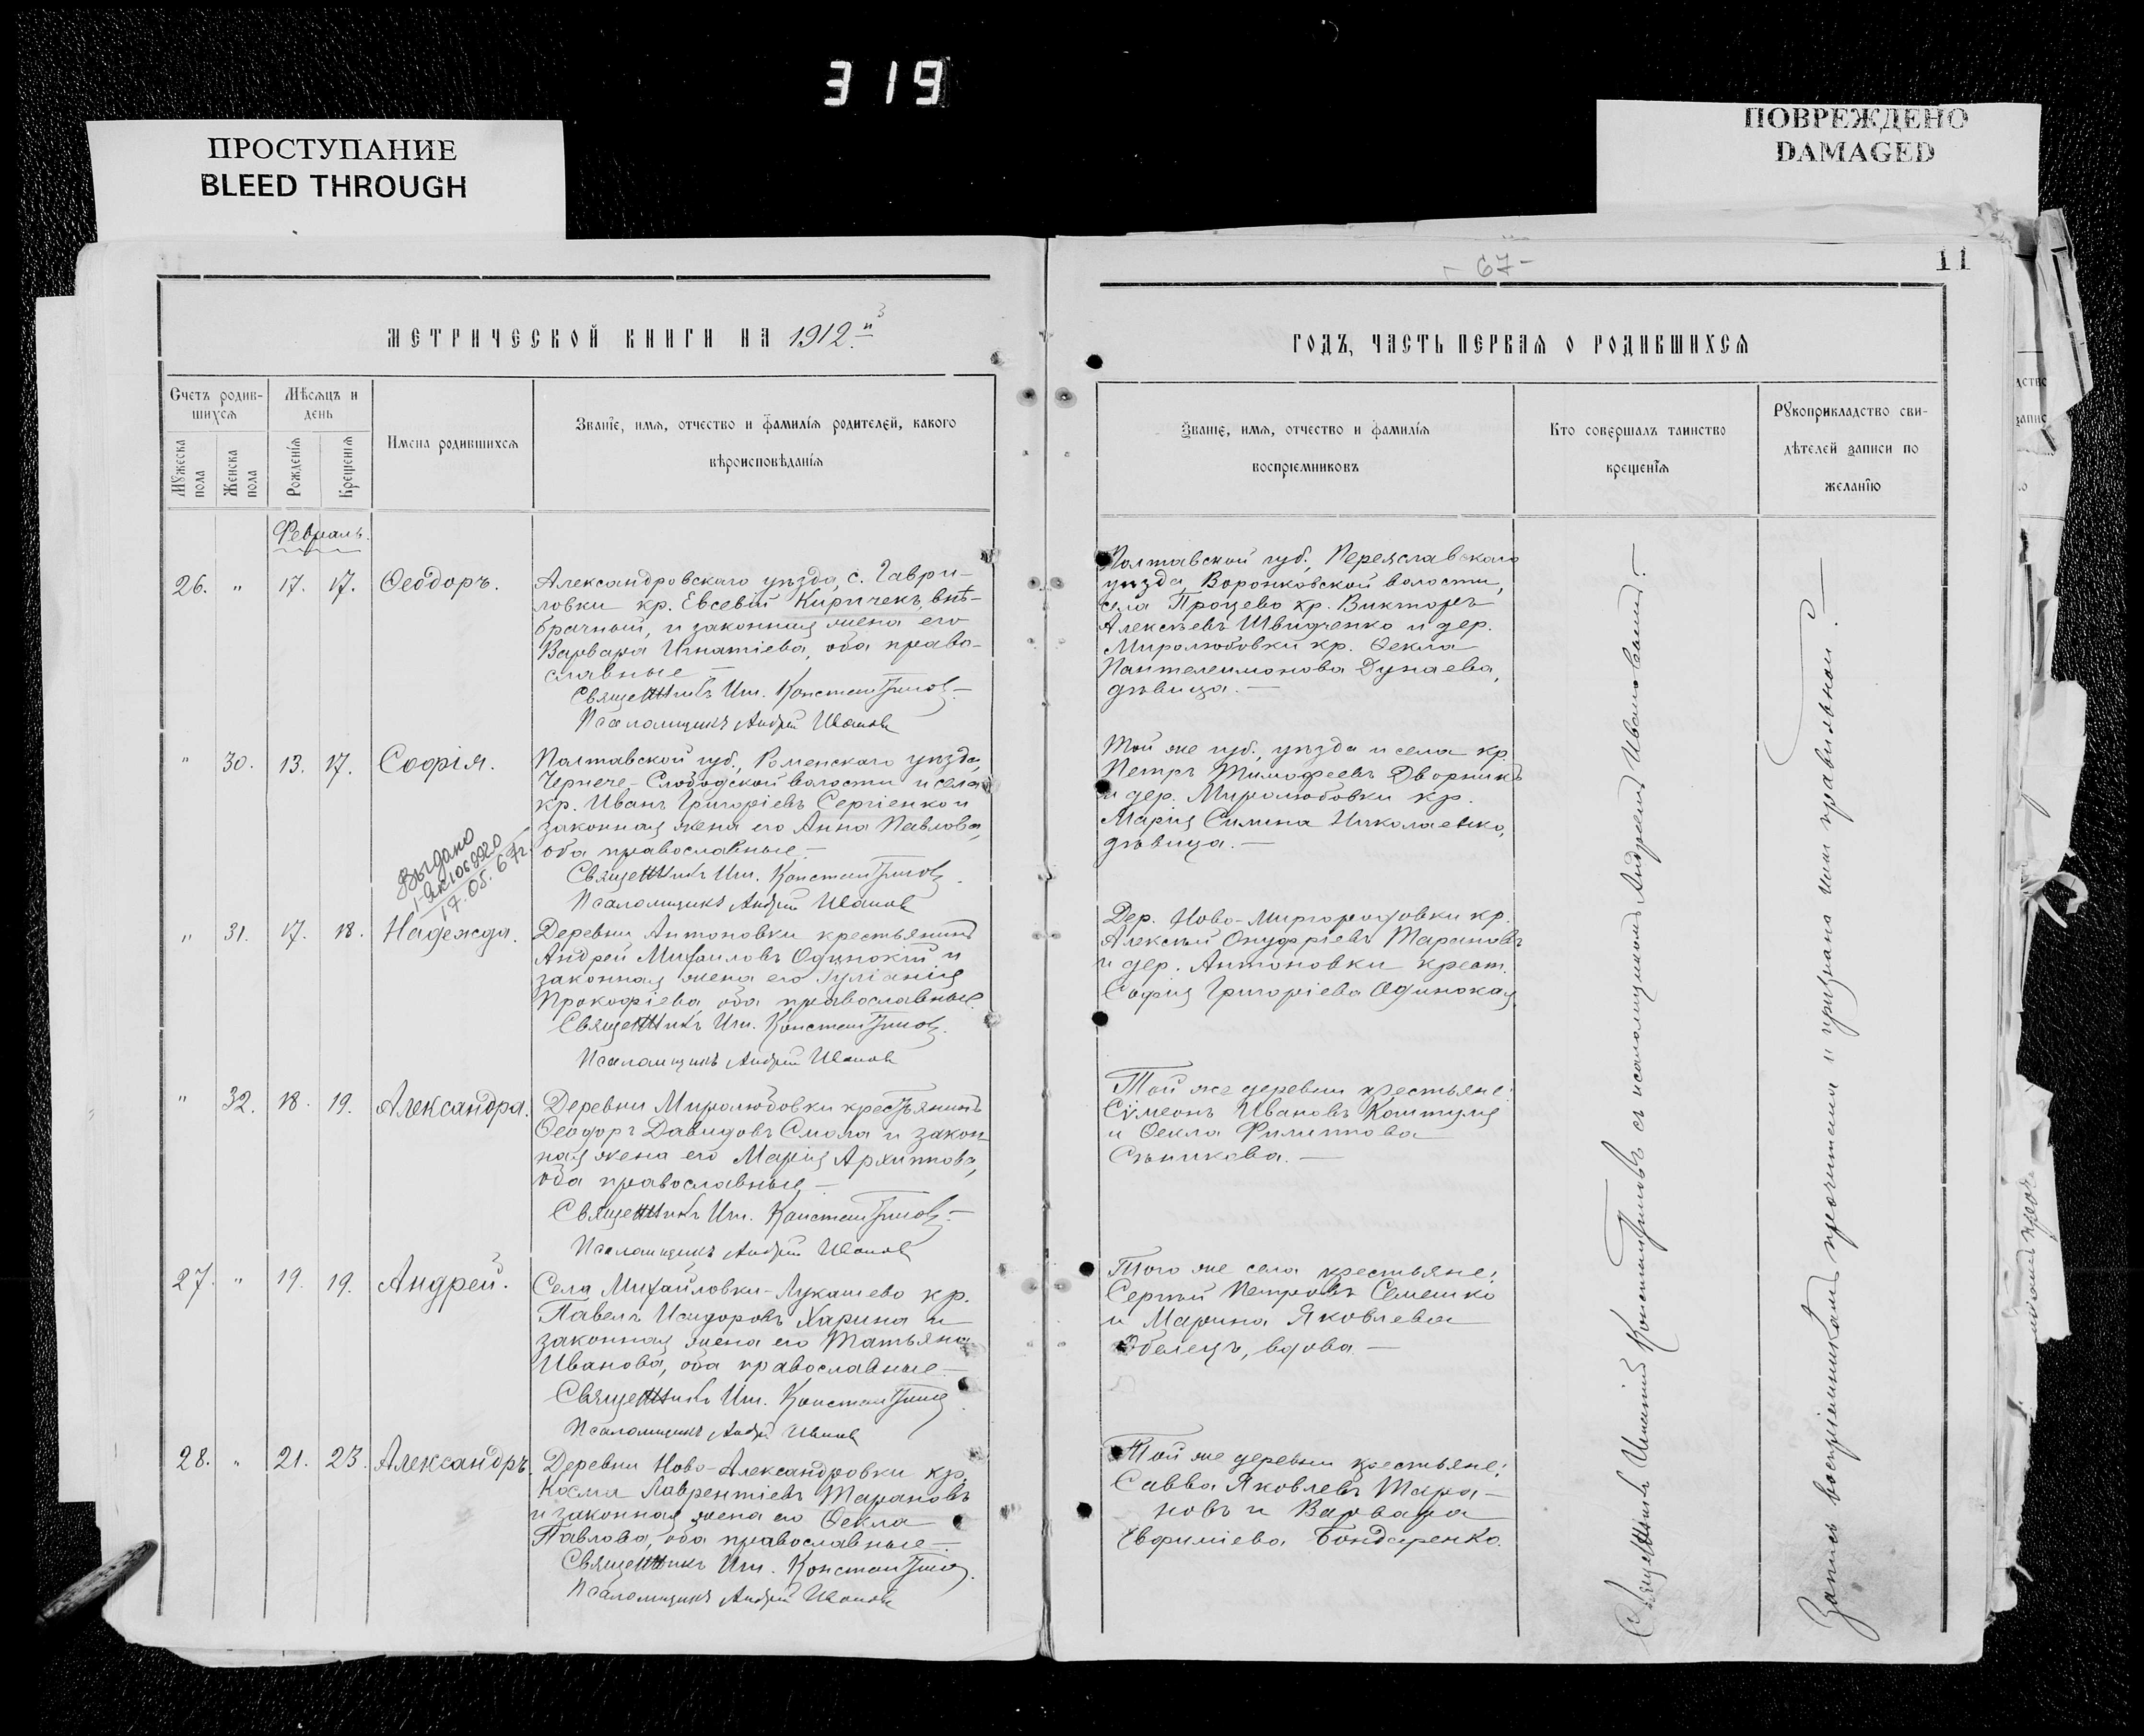 319
ПРОСТУПАНИЕ
BLEED THROUGH
ПОВРЕЖДЕНО
DAMAGED
- 67 -
11
МЕТРИЧЕСКОЙ КНИГИ НА 1912.
Счетъ родив-
шихся
Мѣсяцъ и
день
Мужеска
пола
Женска
пола
Рожденія
Крещенія
Имена родившихся
Званіе, имя, отчество и фамилія родителей, какого
вѣроисповѣданія
Февраль.
26. " 17. 17. Ѳеодоръ.
Александровскаго уѣзда, с. Гаври-
ловки кр. Евсевій Киричекъ, внѣ-
брачный, и законная жена его
Варвара Игнатіева, оба право-
славные —
Священникъ Иг. Константиновъ
Псаломщикъ Андрей Ивановъ
" 30. 13. 17. Софія.
Полтавской губ., Роменскаго уѣзда,
Чернече-Слободской волости и села
кр. Иванъ Григоріевъ Сергіенко и
законная жена его Анна Павлова,
оба православные. —
Священникъ Иг. Константиновъ
Псаломщикъ Андрей Ивановъ
Выдано
17.05.67г.
" 31. 17. 18. Надежда.
Деревни Антоновки крестьянинъ
Андрей Михаиловъ Одинокій и
законная жена его Іуліанія
Прокофіева, оба православные.
Священникъ Иг. Константиновъ
Псаломщикъ Андрей Ивановъ
" 32. 18. 19. Александра.
Деревни Миролюбовки крестьянинъ
Ѳеодоръ Давидовъ Смола и закон-
ная жена его Марія Архиппова,
оба православные, —
Священникъ Иг. Константиновъ
Псаломщикъ Андрей Ивановъ
27. " 19. 19. Андрей.
Села Михайловки-Лукашево кр.
Павелъ Исидоровъ Харина и
законная жена его Татьяна
Иванова, оба православные —
Священникъ Иг. Константиновъ
Псаломщикъ Андрей Ивановъ
28. " 21. 23. Александръ.
Деревни Ново-Александровки кр.
Косма Лаврентіевъ Тарановъ
и законная жена его Ѳекла
Павлова, оба православные —
Священникъ Иг. Константиновъ
Псаломщикъ Андрей Ивановъ
ГОДЪ, ЧАСТЬ ПЕРВАЯ О РОДИВШИХСЯ
Званіе, имя, отчество и фамилія
воспріемниковъ
Кто совершалъ таинство
крещенія
Рукоприкладство сви-
дѣтелей записи по
желанію
Полтавской губ., Переяславскаго
уѣзда, Воронковской волости,
села Процево кр. Викторъ
Алексѣевъ Швидченко и дер.
Миролюбовки кр. Ѳекла
Пантелеимонова Дунаева,
дѣвица. —
Той же губ., уѣзда и села кр.
Петръ Тимофеевъ Дворникъ
и дер. Миролюбовки кр.
Марія Симина Николаенко,
дѣвица. —
Дер. Ново-Миргородовки кр.
Алексѣй Онуфріевъ Тарановъ
и дер. Антоновки крест.
Софія Григоріева Одинокая
Той же деревни крестьяне:
Сѵмеонъ Ивановъ Коштуля
и Ѳекла Филиппова
Сѣникова. —
Того же села крестьяне:
Сергѣй Петровъ Семешко
и Марина Яковлева
Збелецъ, вдова —
Той же деревни крестьяне:
Савва Яковлевъ Тара-
новъ и Варвара
Евфиміева Бондаренко.
Священникъ Игнатій Константиновъ съ псаломщикомъ Андреемъ Ивановымъ. —
Запись воспріемниками прочитана и признана ими правильной. —